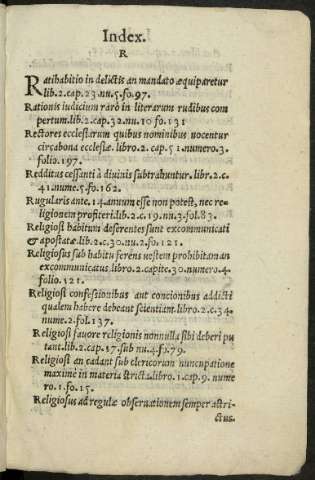 Index.
R
Ratihabitio in delictis an mandato æquiparetur
lib.2.cap.23.nu.5.fo.97.
Rationis iudicium rarò in literarum rudibus com
pertum.lib.2.cap.32.nu.10 fo.131
Rectores ecclesiarum quibus nominibus uocentur
circa bona ecclesiæ. libro.2.cap.51.numero.3.
folio.197.
Redditus cessanti à diuinis subtrahuntur. libr.2.c.
41.nume.5.fo.162.
Rugularis ante.14.annum esse non potest, nec re-
ligionem profiteri.lib.2.c.19.nu.3.fol.83.
Religiosi habitum deserentes sunt excommunicati
& apostatæ.lib.2.c.30.nu.2.fo.121.
Religiosus sub habitu ferens uestem prohibitam an
excommunicatus.libro.2.capite.30.numero.4.
folio.121.
Religiosi confessionibus aut concionibus addicti
qualem habere debeant scientiam.libro.2.c.34.
nume.2.fol.137.
Religiosi fauore religionis nonnulla sibi deberi pu
tant.lib.2.cap.17.sub nu.4.fo.79.
Religiosi an cadant sub clericorum nuncupatione
maxime in materia stricta.libro.1.cap.9.nume
ro.1.fo.15.
Religiosus ad regulæ obseruationem semper astri-
ctus.